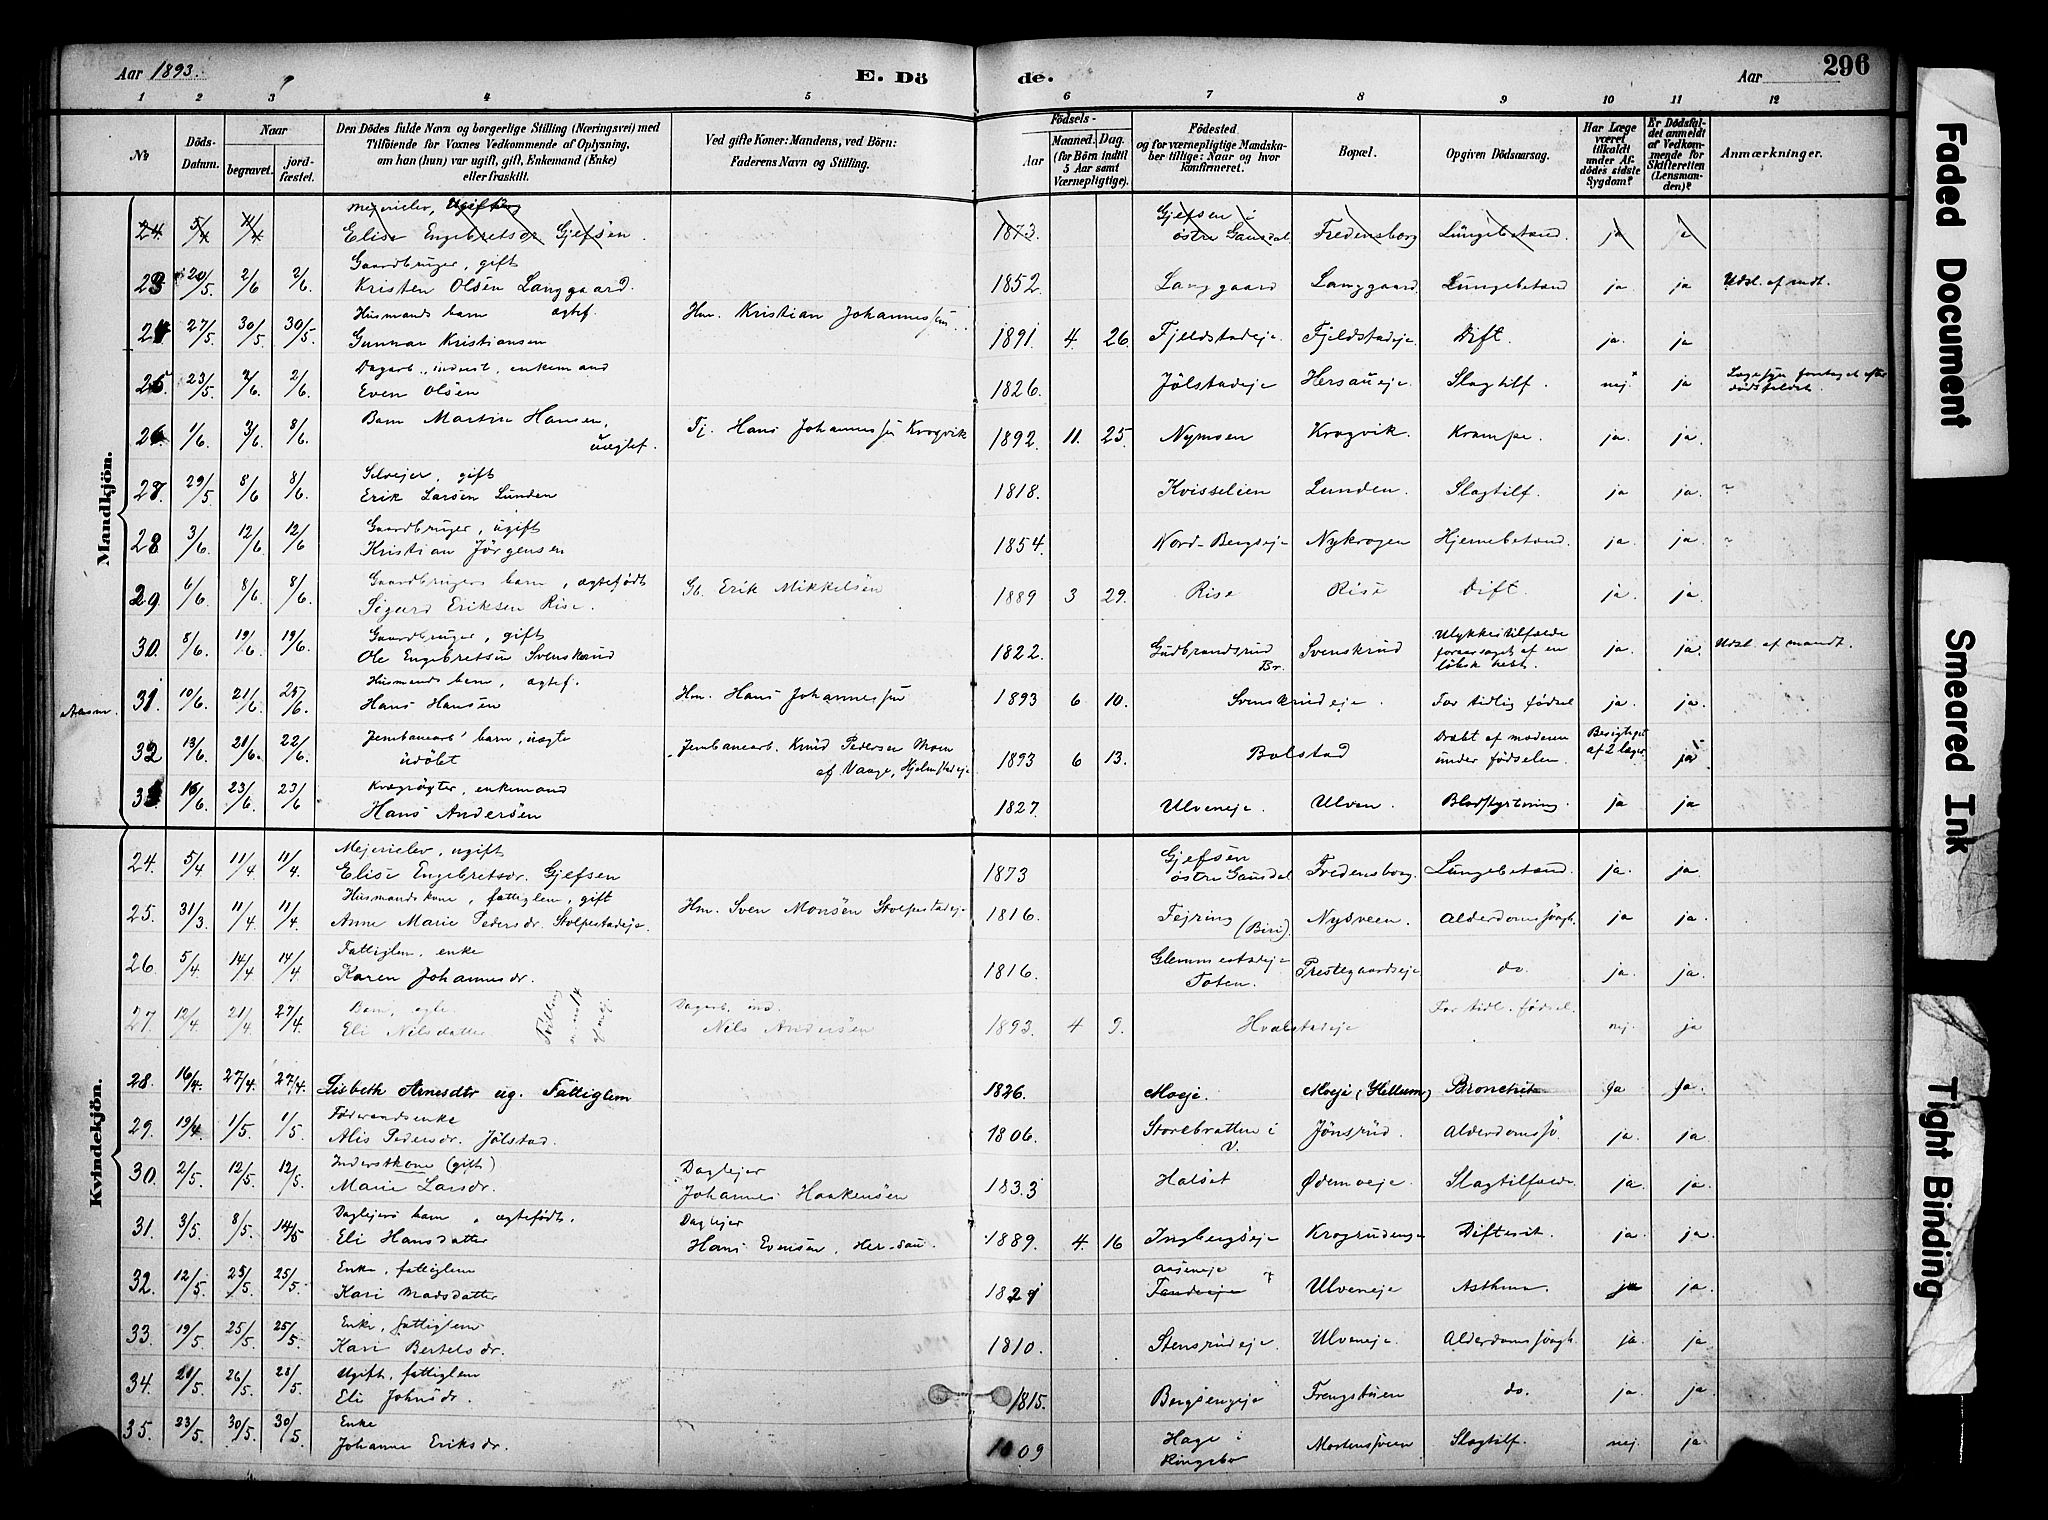 Aar 1893. E. Dö de. Aar 296
1 2 3 4 5 6 7 8 9 10 11 12
No
Döds-Datum.
Naar
begravet.
jordfæstet.
Den Dödes fulde Navn og borgerlige Stilling (Næringsvei) med
Tilföiende for Voxnes Vedkommende af Oplysning,
om han (hun) var ugift, gift, Enkemand (Enke)
eller fraskilt.
Ved gifte Koner: Mandens, ved Börn:
Faderens Navn og Stilling.
Födsels-
Aar
Maaned. Dag.
(for Börn indtil
5 Aar samt
Værnepligtige).
Födested
og for værnepligtige Mandskaber
tillige: Naar og hvor
konfirmeret.
Bopæl.
Opgiven Dödsaarsag.
Har Læge været tilkaldt under Afdödes sidste Sygdom?
Er Dödsfaldet anmeldt af Vedkommende for Skifteretten (Lensmanden)?
Anmærkninger.
Mandkjön.
24. 5/4 11/4 Mejerielev, Ugift
Elise Engebretsdr Gjefsen. 1873. Gjefsen i østre Gausdal Fredensborg Lungebetænd. ja
23 20/5 2/6 2/6 Gaardbruger, gift
Kristen Olsen Langgaard. 1852. Langgaard Langgaard Lungebetænd ja ja Udsl. af medt.
24 27/5 30/5 30/5 Husmands barn ægtef. Hm. Kristian Johannessen
Gunnar Kristiansen 1891. 4. 26. Fjeldstadeje. Fjeldstadeje. Dift. ja. ja
25 23/5 2/6 2/6 Dagarb., inderst., enkemand
Even Olsen 1826. Jölstadeje Hersaueje. Slagtilf. nej. ja
26. 1/6 3/6 8/6 Barn Martin Hansen, uægtef. Tj. Hans Johannessen Krogvik 1892 11. 25. Nymoen Krogvik. Krampe. ja. ja.
27. 29/5 8/6 8/6 Selvejer, gift
Erik Larsen Lunden 1818. Kvisselien Lunden. Slagtilf. ja ja.
28 3/6. 12/6. 12/6 Gaardbruger, ugift
Kristian Jörgensen 1854. Nord-Bergseje Nykrogen Hjernebetænd. ja. ja.
29 6/6. 8/6 8/6 Gaardbrugers barn, ægtefödt Gb. Erik Mikkelsen
Sigurd Eriksen Rise. 1889 3 29. Rise Rise Dift. ja. ja.
30. 8/6. 19/6. 19/6. Gaardbruger, gift
Ole Engebretsen Svenskrud 1822. Gudbrandsrud Br. Svenskrud Ulykkestilfælde foraarsaget af en löbsk hest. ja. ja. Udsl. af mandt.
31 10/6. 21/6 25/6 Husmands barn, ægtef. Hm. Hans Johannessen
Hans Hansen 1893 6 10. Svenskrudeje. For tidlig födsel ja. ja.
32 13/6. 21/6. 22/6 Jernbanearb' barn, uægte Jernbanearb. Knud Pedersen Moen
udöbt af Vaage, Hjelmstadeje 1893 6 13. Bolstad Dræbt af moderen under födselen. Besigtiget af 2 læger ja
33 16/6. 23/6. 23/6 Kvægrögter, enkemand
Hans Andersen 1827. Ulveneje. Ulven. Blodstyrtning. ja ja
Kvindekjön.
24. 5/4 11/4 11/4 Mejerielev, ugift
Elise Engebretsdr. Gjefsen 1873 Gjefsen østre Gausdal Fredensborg. Lungebetænd. ja. ja.
25. 31/3 11/4 11/4 Husmandskone, fattiglem, gift
Anne Marie Pedersdr. Stolpestadeje. Hm. Sven Monsen Stolpestadeje 1816. Fejring (Biri). Nysveen Alderdomssvagh. ja ja.
26 5/4 14/4 14/4 Fattiglem, enke
Karen Johannesdr. 1816. Glemmestadeje Toten. Prestegaardseje do ja. ja.
27. 12/4 21/4 27/4 Barn, ægte
Eli Nilsdatter Dagarb. ind. Nils Andersen 1893. 4 9. Hvalstadeje For tidl. födsel. nej. ja
28. 16/4. 27/4. 27/4. Lisbeth Arnesdtr ug. Fattiglem 1826. Moeje. Moeje (Hellum) Bronchit ja ja.
29. 19/4 1/5. 1/5. Föderaadsenke
Alis Pedersdr. Jölstad. 1806. Storebratten i V. Jönsrud. Alderdomssv. ja. ja.
30. 2/5. 12/5. 12/5. Inderstkone (gift) Daglejer
Marie Larsdr. Johannes Haakensen 1833 Halset Ødemoeje. Slagtilfælde ja. ja.
31. 3/5. 8/5. 14/5 Daglejers barn, ægtefödt. Daglejer
Eli Hansdatter Hans Evensen, Hersau. 1889. 4. 16 Ingbergseje Krogrudengn Difterit. ja. ja.
32. 12/5. 25/5. 25/5. Enke, fattiglem
Kari Madsdatter 1821 Aaseneje Ulveneje Asthma. ja ja.
33. 19/5. 25/5. 25/5. Enke, fattiglem
Kari Bertelsdr. 1810. Stensrudeje. Ulveneje. Alderdomssvagh. ja. ja.
34. 20/5. 26/5. 28/5. Ugift, fattiglem
Eli Johnsdr. 1815. Bergsengeje Frengstuen do. ja. ja.
35. 23/5. 30/5. 30/5. Enke
Johanne Eriksdr. 09 Hage i Ringebo Mortenssveen Slagtilf. nej. ja.
Faded Document
Smeared Ink
Tight Binding